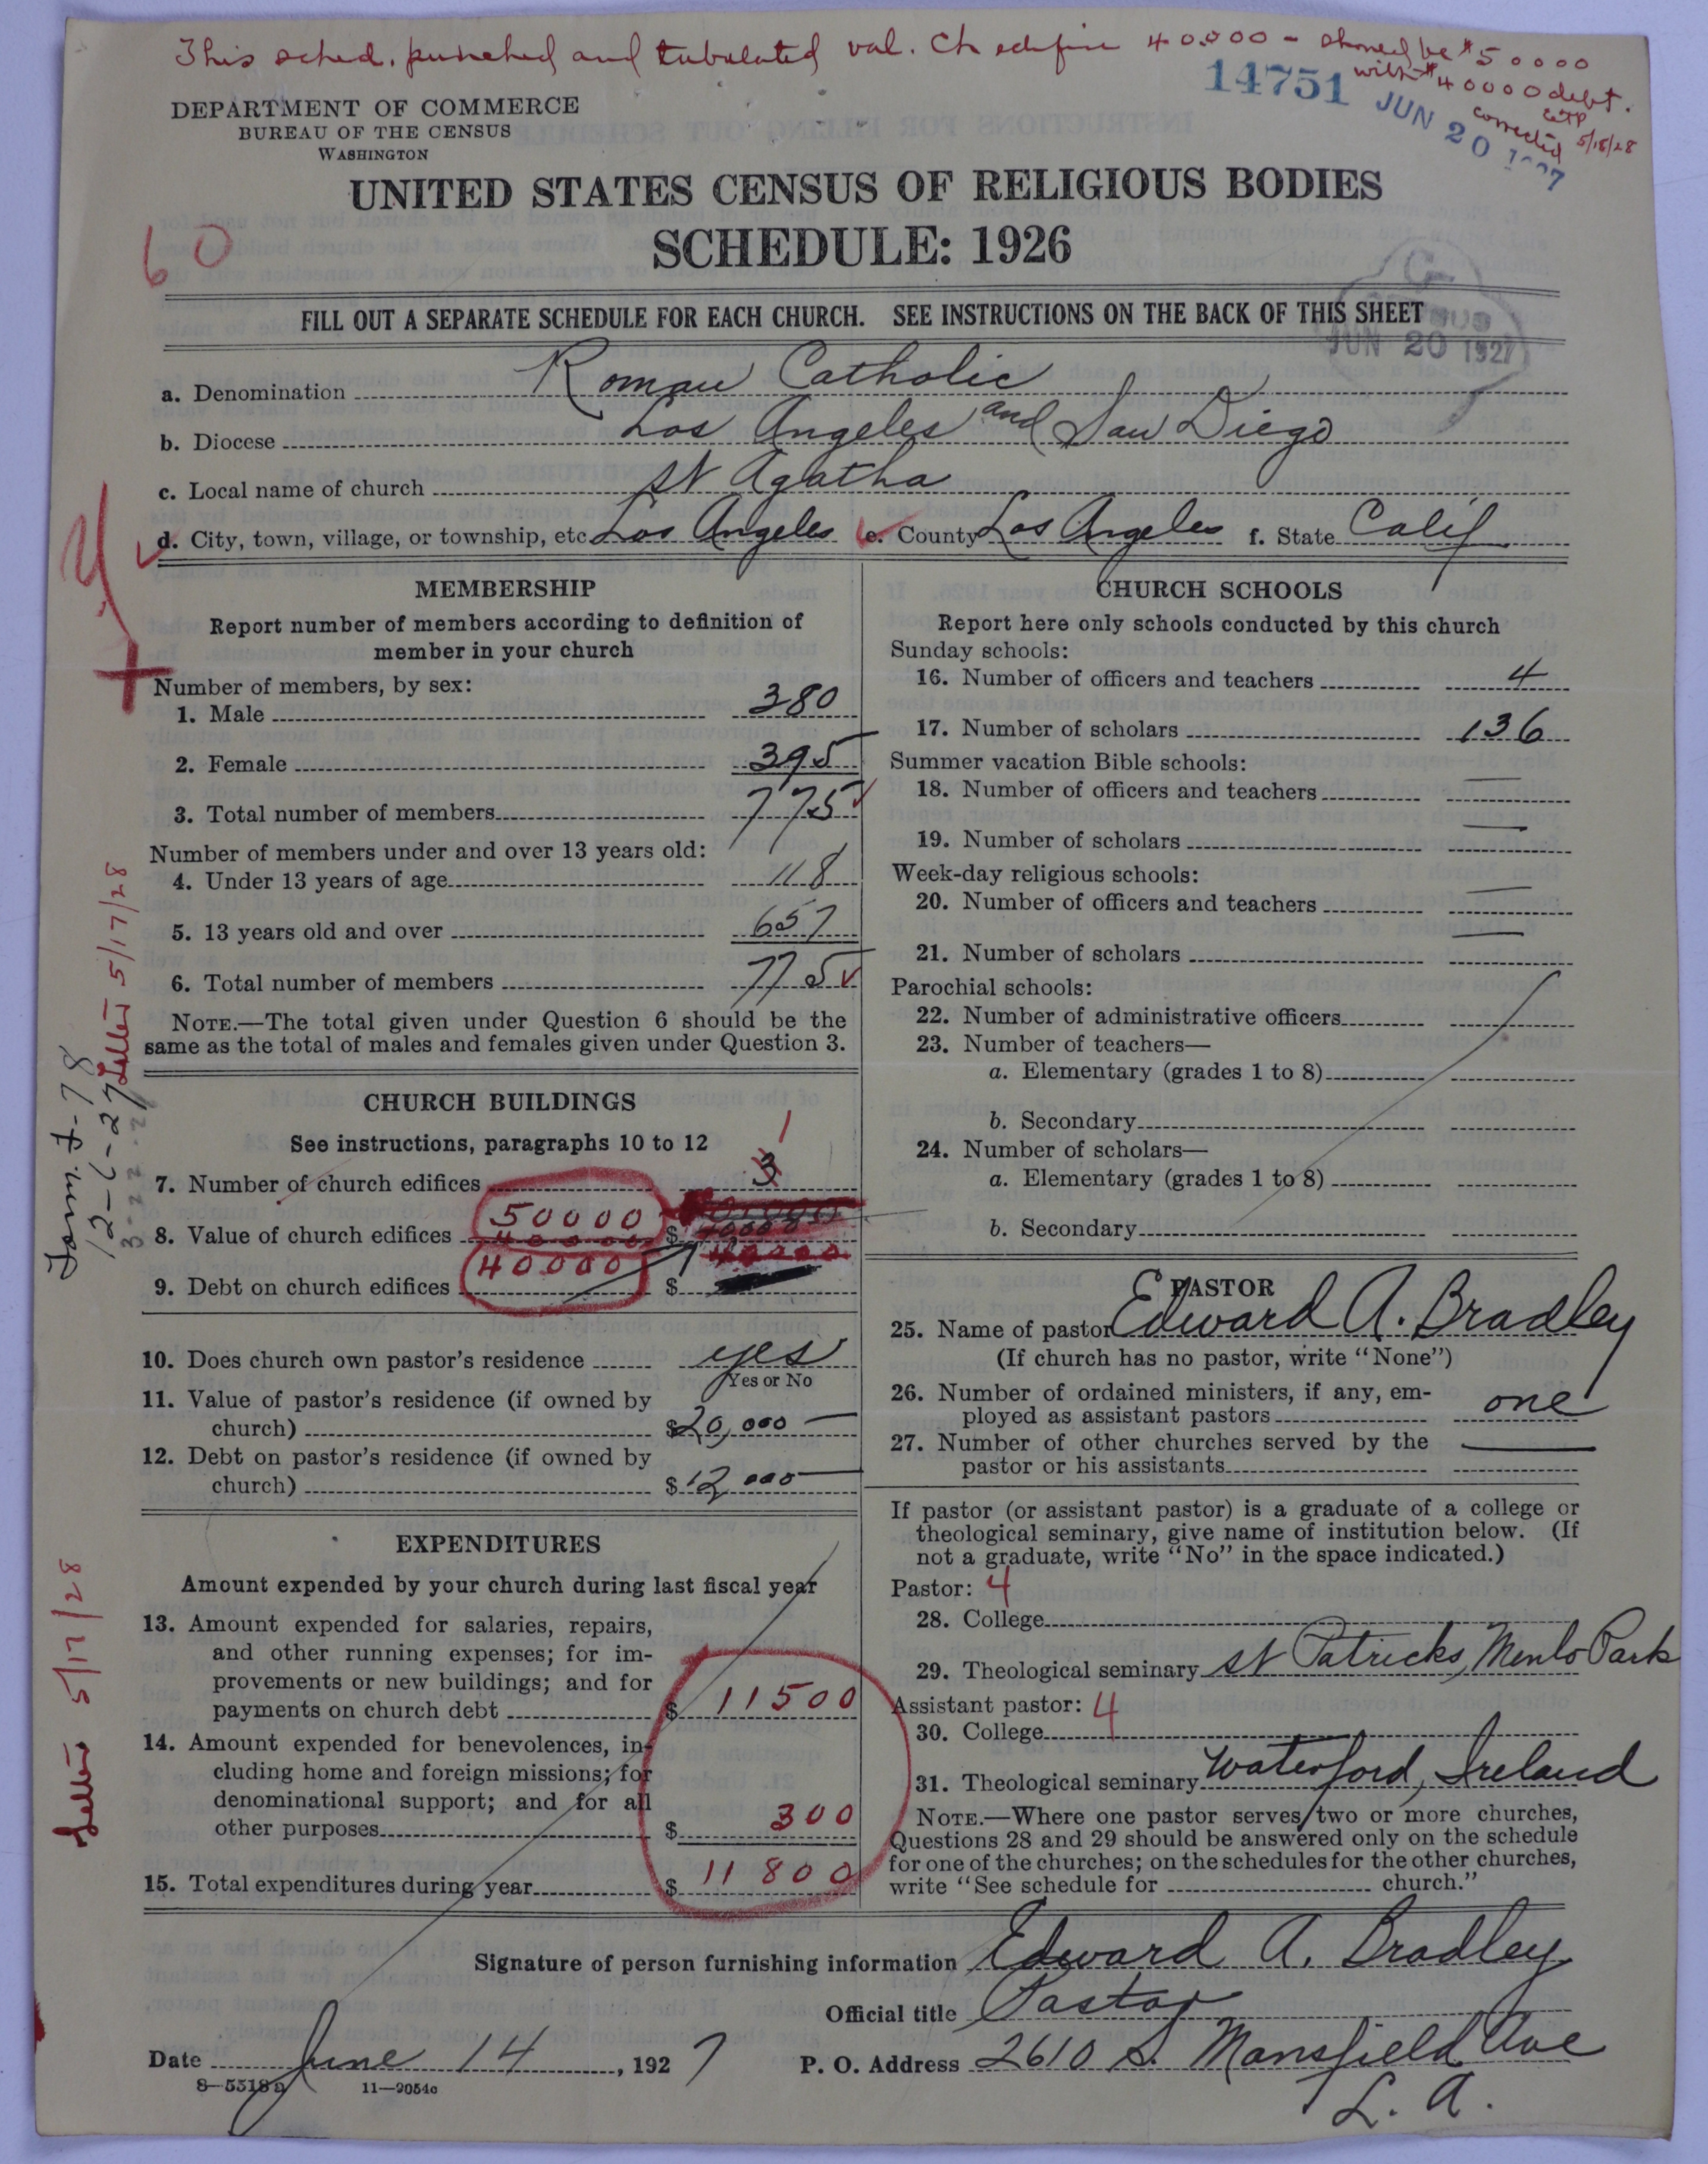 This sched. punched and tabulated val. Ch edifice 40.000 - should be $50000
with $40000 debt.
corrected 5/18/28
14751 JUN 20
DEPARTMENT OF COMMERCE
BUREAU OF THE CENSUS
WASHINGTON
UNITED STATES CENSUS OF RELIGIOUS BODIES
SCHEDULE: 1926
60
FILL OUT A SEPARATE SCHEDULE FOR EACH CHURCH. SEE INSTRUCTIONS ON THE BACK OF THIS SHEET
JUN 20 1927
a. Denomination Roman Catholic
b. Diocese Los Angeles and San Diego
c. Local name of church St Agatha
d. City, town, village, or township, etc Los Angeles e. County Los Angeles f. State Calif
MEMBERSHIP
Report number of members according to definition of
member in your church
Number of members, by sex:
1. Male 380
2. Female 395
3. Total number of members 775
Number of members under and over 13 years old:
4. Under 13 years of age 118
5. 13 years old and over 657
6. Total number of members 775
NOTE.—The total given under Question 6 should be the
same as the total of males and females given under Question 3.
CHURCH BUILDINGS
See instructions, paragraphs 10 to 12
1
7. Number of church edifices 3
50000
8. Value of church edifices $
40000
9. Debt on church edifices $
10. Does church own pastor's residence yes
Yes or No
11. Value of pastor's residence (if owned by
church) $20,000
12. Debt on pastor's residence (if owned by
church) $12,000
EXPENDITURES
Amount expended by your church during last fiscal year
13. Amount expended for salaries, repairs,
and other running expenses; for im-
provements or new buildings; and for
payments on church debt $ 11500
14. Amount expended for benevolences, in-
cluding home and foreign missions; for
denominational support; and for all
other purposes $ 300
15. Total expenditures during year $ 11800
CHURCH SCHOOLS
Report here only schools conducted by this church
Sunday schools:
16. Number of officers and teachers 4
17. Number of scholars 136
Summer vacation Bible schools:
18. Number of officers and teachers —
19. Number of scholars —
Week-day religious schools:
20. Number of officers and teachers —
21. Number of scholars —
Parochial schools:
22. Number of administrative officers
23. Number of teachers—
a. Elementary (grades 1 to 8)
b. Secondary
24. Number of scholars—
a. Elementary (grades 1 to 8)
b. Secondary
PASTOR
25. Name of pastor Edward A. Bradley
(If church has no pastor, write "None")
26. Number of ordained ministers, if any, em-
ployed as assistant pastors one
27. Number of other churches served by the
pastor or his assistants —
If pastor (or assistant pastor) is a graduate of a college or
theological seminary, give name of institution below. (If
not a graduate, write "No" in the space indicated.)
Pastor: 4
28. College
29. Theological seminary St Patricks, Menlo Park
Assistant pastor: 4
30. College
31. Theological seminary Waterford, Ireland
NOTE.—Where one pastor serves two or more churches,
Questions 28 and 29 should be answered only on the schedule
for one of the churches; on the schedules for the other churches,
write "See schedule for church."
Signature of person furnishing information Edward A. Bradley
Official title Pastor
Date June 14, 1927 P. O. Address 2610 S. Mansfield Ave
L. A.
8-5318a 11-9054c
Letter 5/17/28
12-6-27
Letter 5/17/28